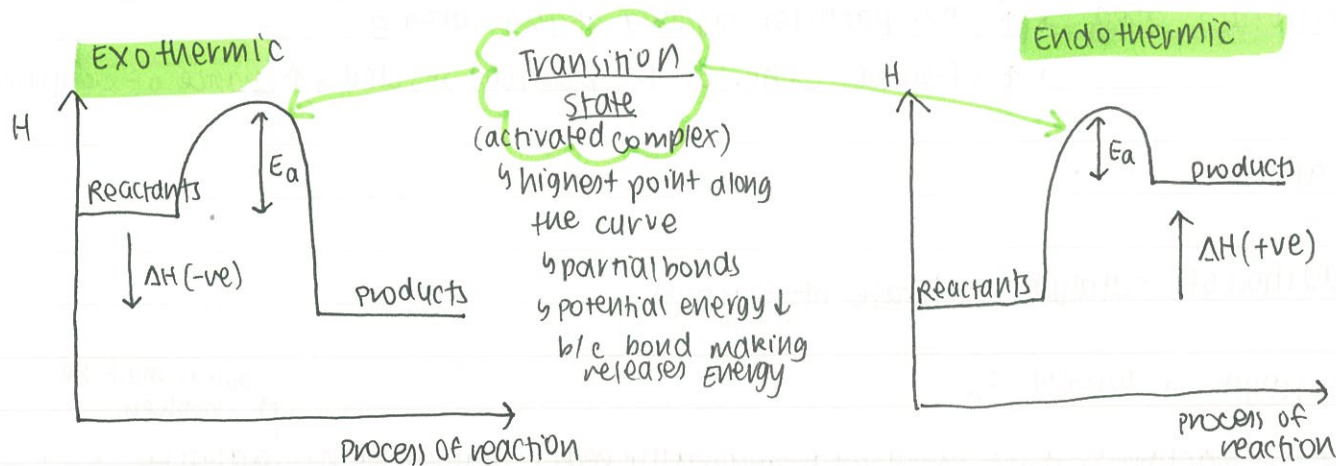 Exothermic
H
Reactants
Ea
ΔH (-ve)
products
process of reaction
Transition
state
(activated complex)
↳ highest point along
the curve
↳ partial bonds
↳ potential energy ↓
b/c bond making
releases energy
Endothermic
H
Ea
products
ΔH (+ve)
Reactants
process of
reaction